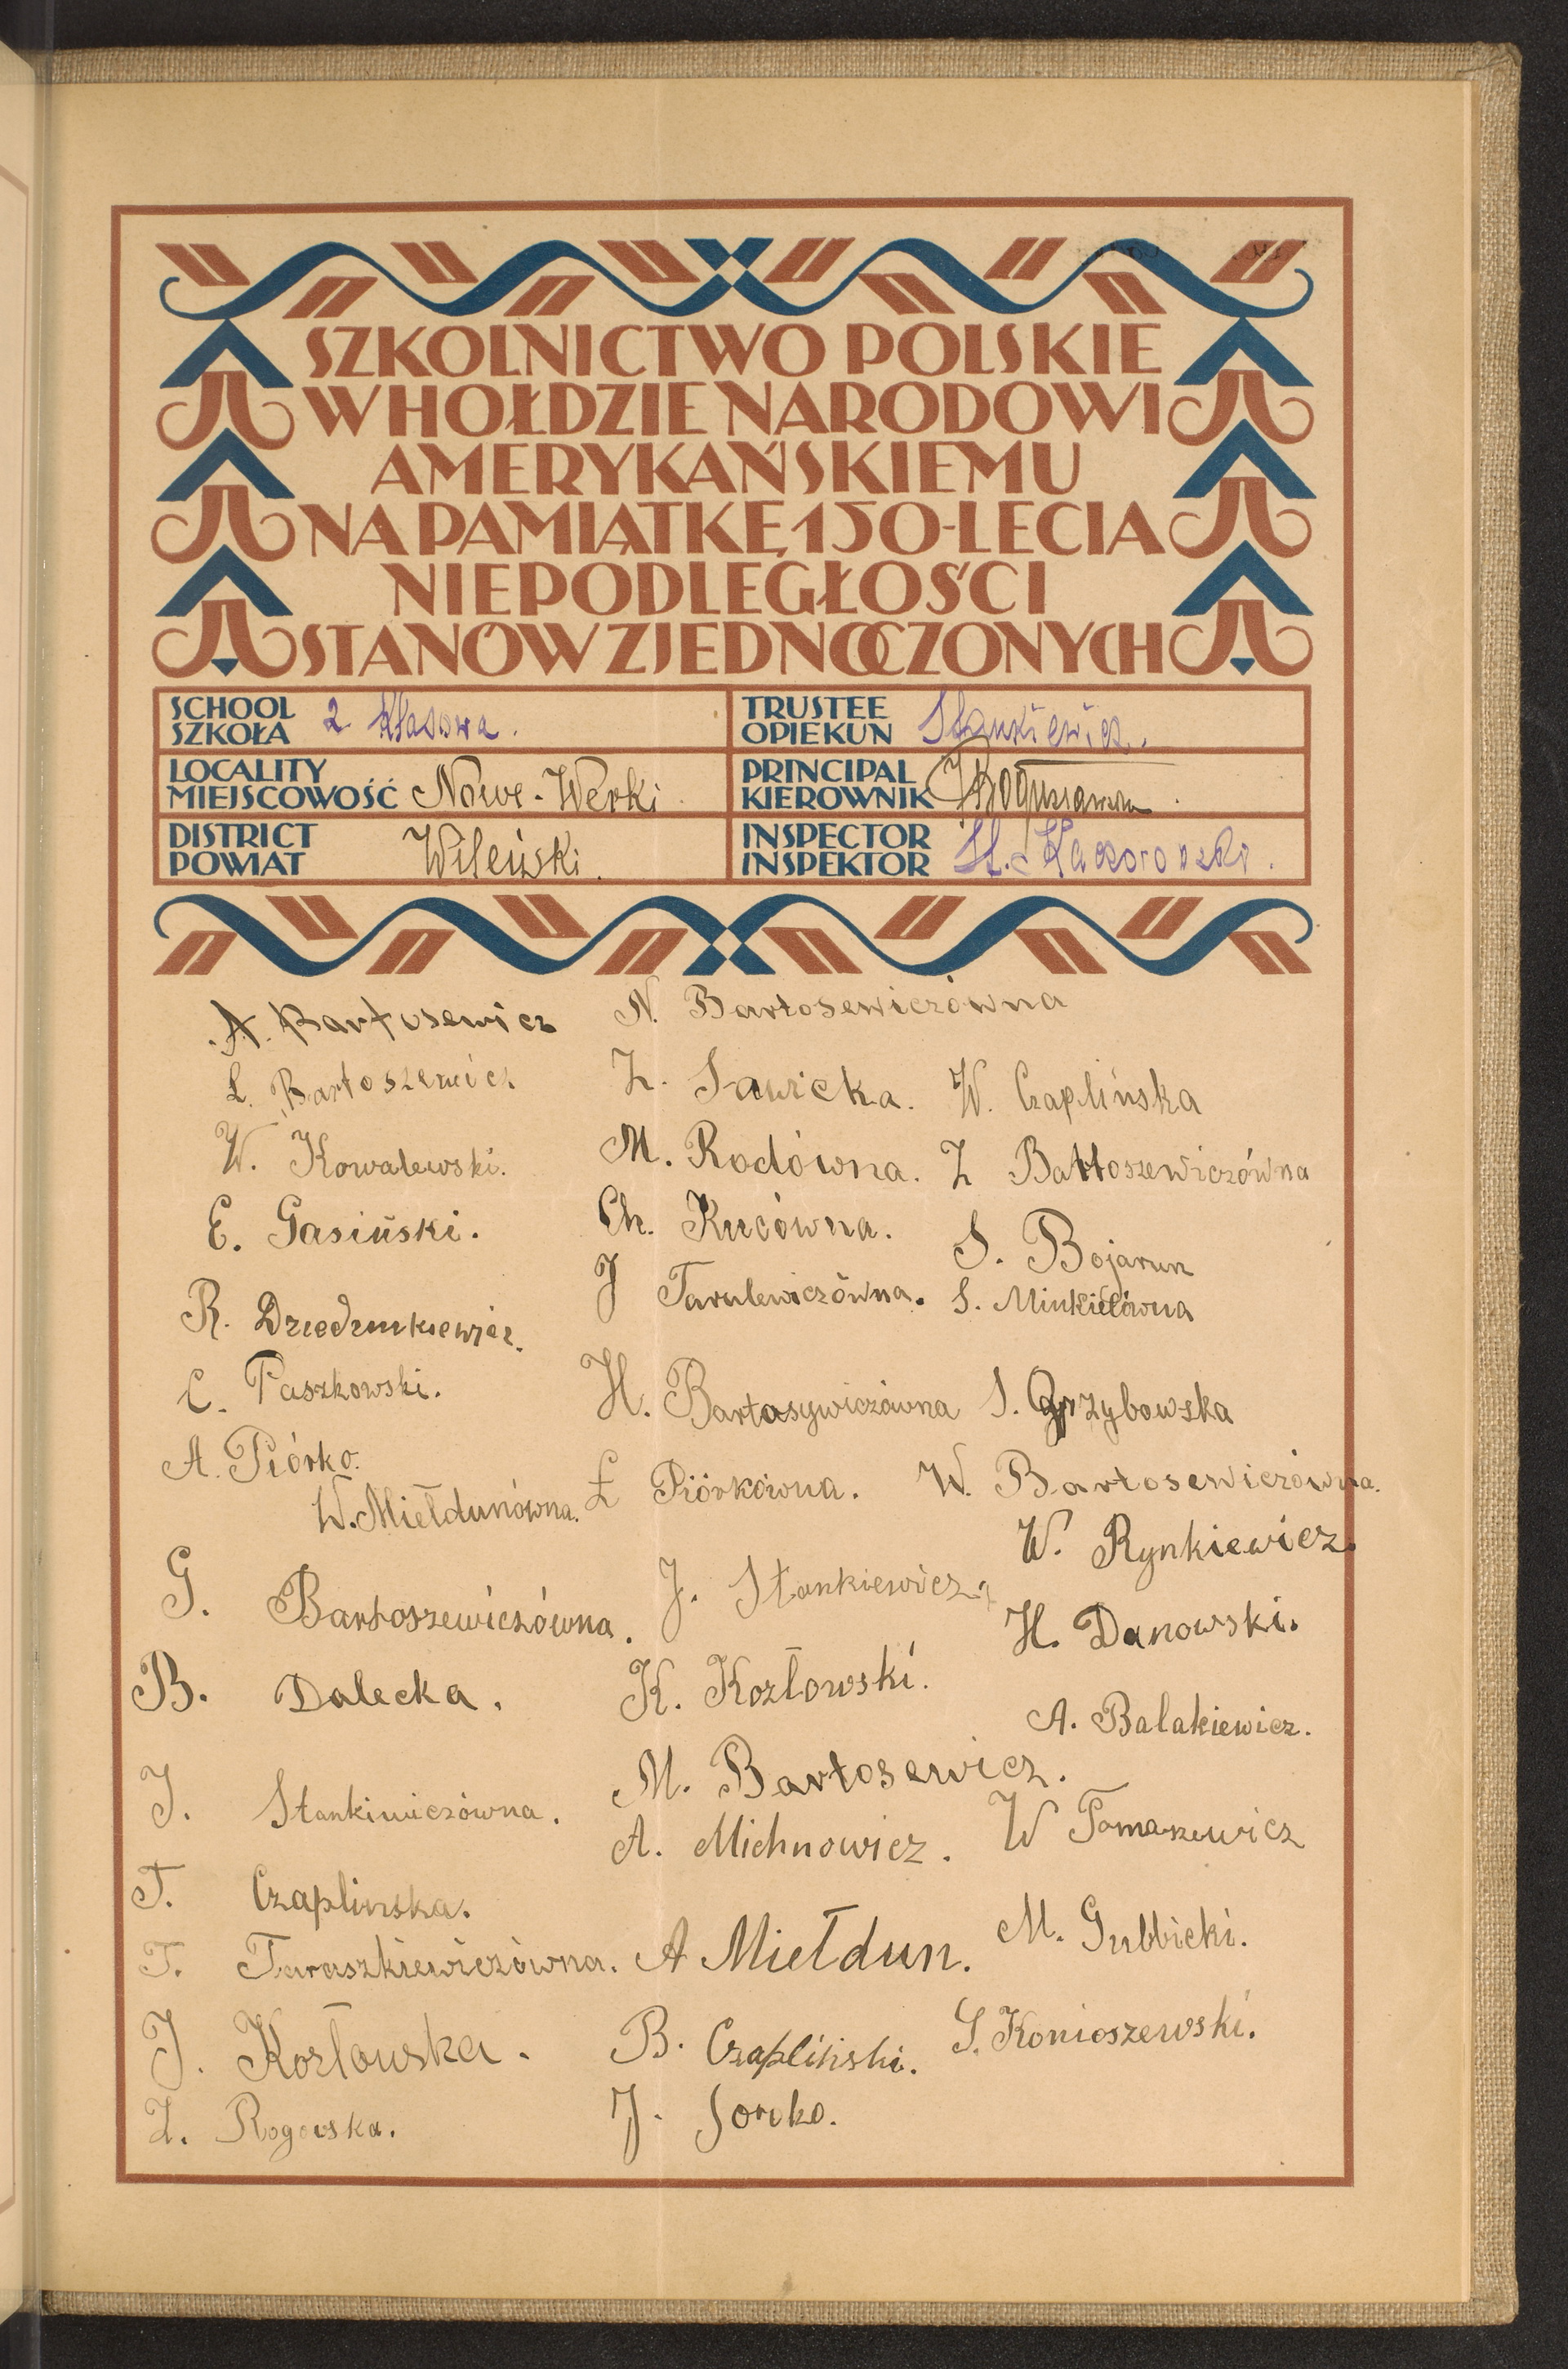 SZKOLNICTWO POLSKIE
W HOŁDZIE NARODOWI
AMERYKAŃSKIEMU
NA PAMIĄTKĘ 150-LECIA
NIEPODLEGŁOŚCI
STANÓW ZJEDNOCZONYCH
SCHOOL
SZKOŁA 2 klasowa.
TRUSTEE
OPIEKUN Stankiewicz.
LOCALITY
MIEJSCOWOŚĆ Nowe-Werki
PRINCIPAL
KIEROWNIK
DISTRICT
POWIAT Wileński.
INSPECTOR
INSPEKTOR St.
A. Bartosewicz
L. Bartoszewicz
W. Kowalewski.
E. Gasiński.
R. Dziedzinkiewicz.
C. Paszkowski.
A. Piórko.
W. Miełdunówna.
G. Bartoszewiczówna.
B. Dalecka.
J. Stankiwiczówna.
T. Czaplinska.
T. Taraszkiewiczówna.
J. Kozłowska.
Z. Rogowska.
N. Bartosewiczówna
Z. Sawicka.
M. Rodówna.
Ch. Kucówna.
J Tarulewiczówna.
H. Bartosywiczówna
Ł Piórkówna.
J. Stankiewicz.
K. Kozłowski.
M. Bartosewicz.
A. Michnowicz.
A Miełdun.
B. Czapliński.
J. Soroko.
W. Czaplińska
Z Bartoszewiczówna
S. Bojarun
S. Minkielówna
S. Grzybowska
W. Bartosewiczówna.
W. Rynkiewicz.
H. Danowski.
A. Balakiewicz.
W Tomaszewicz
M. Gubbicki.
S. Konioszewski.